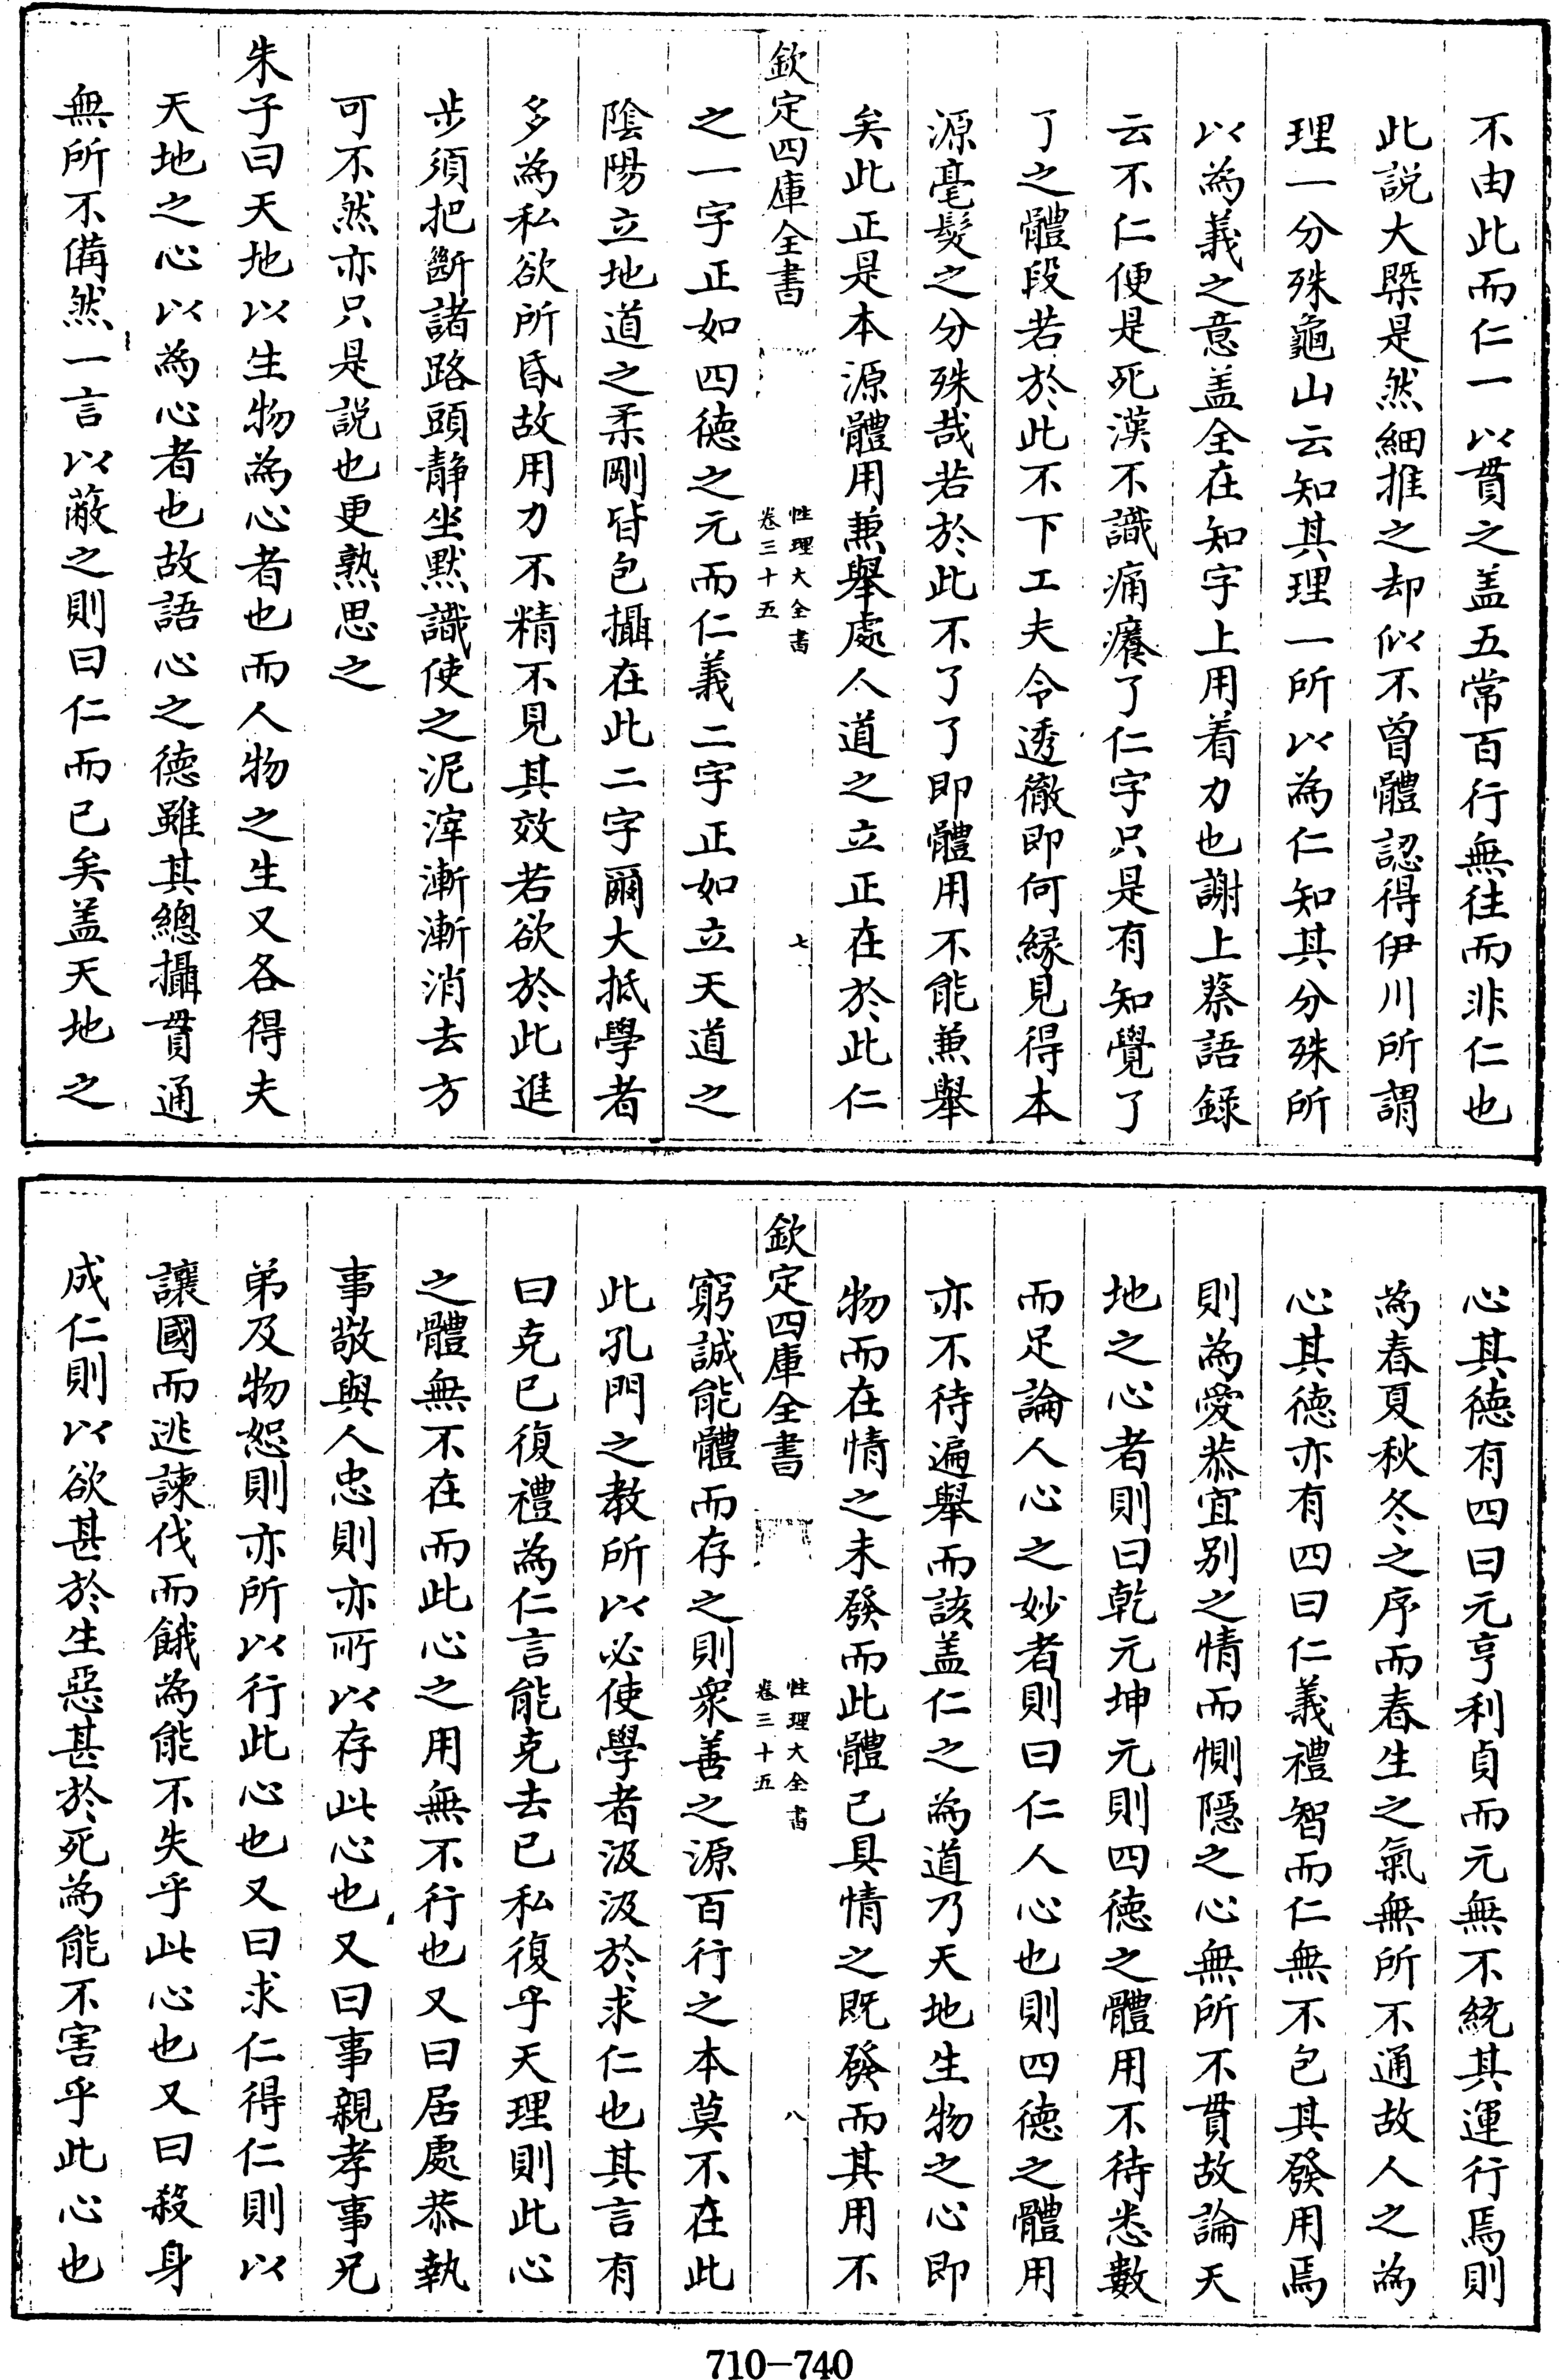 不由此而仁一以貫之盖五常百行無往而非仁也
此說大槩是然細推之却似不曾體認得伊川所謂
理一分殊龜山云知其理一所以為仁知其分殊所
以為義之意盖全在知字上用着力也謝上蔡語錄
云不仁便是死漢不識痛癢了仁字只是有知覺了
了之體段若於此不下工夫令透徹即何縁見得本
源毫髮之分殊哉若於此不了了即體用不能兼舉
矣此正是本源體用兼舉處人道之立正在於此仁
欽定四庫全書
性理大全書
卷三十五
七
之一字正如四徳之元而仁義二字正如立天道之
陰陽立地道之柔剛皆包攝在此二字爾大抵學者
多為私欲所昏故用力不精不見其效若欲於此進
步須把斷諸路頭静坐黙識使之泥滓漸漸消去方
可不然亦只是說也更熟思之
朱子曰天地以生物為心者也而人物之生又各得夫
天地之心以為心者也故語心之德雖其總攝貫通
無所不備然一言以蔽之則曰仁而已矣盖天地之
心其徳有四曰元亨利貞而元無不統其運行焉則
為春夏秋冬之序而春生之氣無所不通故人之為
心其德亦有四曰仁義禮智而仁無不包其發用焉
則為愛恭宜别之情而惻隠之心無所不貫故論天
地之心者則曰乾元坤元則四徳之體用不待悉數
而足論人心之妙者則曰仁人心也則四徳之體用
亦不待遍舉而該盖仁之為道乃天地生物之心即
物而在情之未發而此體已具情之既發而其用不
欽定四庫全書
性理大全書
卷三十五
八
窮誠能體而存之則衆善之源百行之本莫不在此
此孔門之教所以必使學者汲汲於求仁也其言有
曰克已復禮為仁言能克去已私復乎天理則此心
之體無不在而此心之用無不行也又曰居處恭執
事敬與人忠則亦所以存此心也又曰事親孝事兄
弟及物恕則亦所以行此心也又曰求仁得仁則以
讓國而逃諫伐而餓為能不失乎此心也又曰殺身
成仁則以欲甚於生惡甚於死為能不害乎此心也
710-740